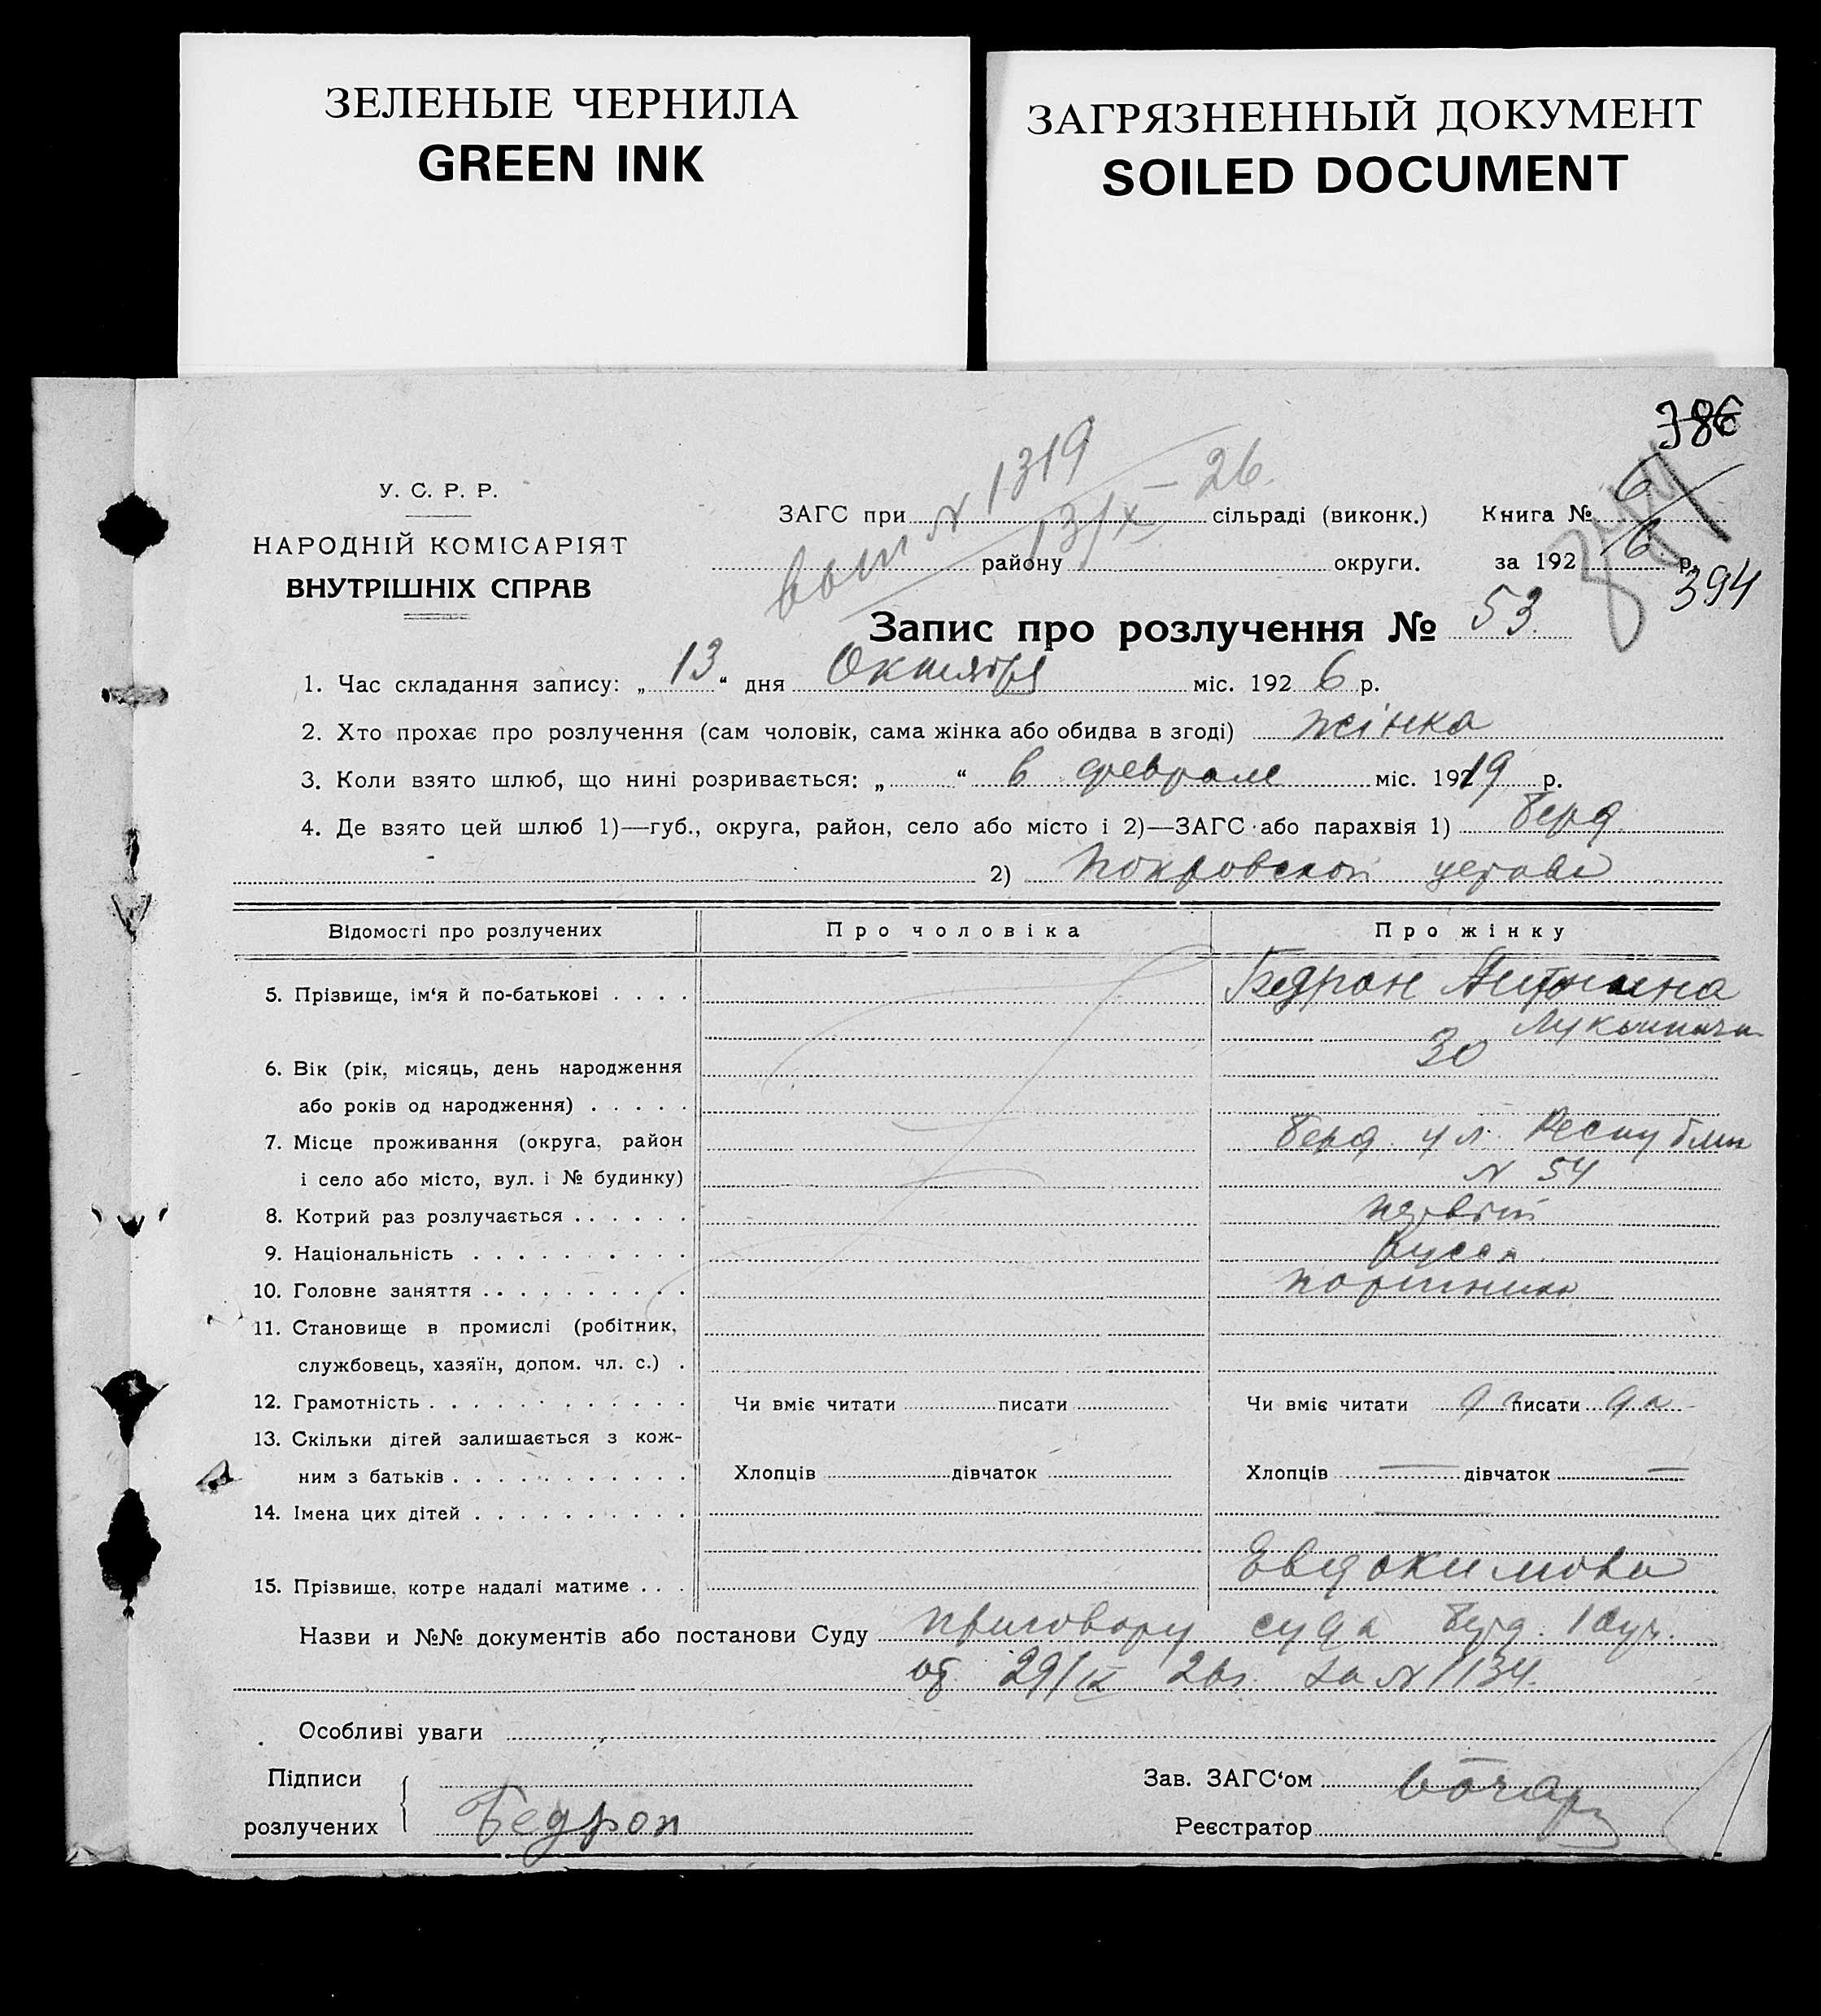 ЗЕЛЕНЫЕ ЧЕРНИЛА
GREEN INK
ЗАГРЯЗНЕННЫЙ ДОКУМЕНТ
SOILED DOCUMENT
386
У. С. Р. Р.
НАРОДНІЙ КОМІСАРІЯТ
ВНУТРІШНІХ СПРАВ
N 1319
13/X – 26
ЗАГС при сільраді (виконк.) Книга № 6
району округи. за 192 6 р.
394
Запис про розлучення № 53
1. Час складання запису: „ 13 “ дня Октября міс. 192 6 р.
2. Хто прохає про розлучення (сам чоловік, сама жінка або обидва в згоді) жінка
3. Коли взято шлюб, що нині розривається: „ “ в феврале міс. 1919 р.
4. Де взято цей шлюб 1)—губ., округа, район, село або місто і 2)—ЗАГС або парахвія 1) Берд.
2) Покровской церкви
Відомості про розлучених Про чоловіка Про жінку
5. Прізвище, ім‘я й по-батькові . . . . Бедрон Антонина
6. Вік (рік, місяць, день народження 30
або років од народження) . . . . .
7. Місце проживання (округа, район Берд. ул. Республик
і село або місто, вул. і № будинку) N 54
8. Котрий раз розлучається . . . . . . первый
9. Національність . . . . . . . . . . русск.
10. Головне заняття . . . . . . . . . .
11. Становище в промислі (робітник,
службовець, хазяїн, допом. чл. с.) .
12. Грамотність . . . . . . . . . . . . Чи вміє читати писати Чи вміє читати да писати да
13. Скільки дітей залишається з кож-
ним з батьків . . . . . . . . . . . Хлопців дівчаток Хлопців — дівчаток —
14. Імена цих дітей . . . . . . . . . . —
15. Прізвише, котре надалі матиме . . . Евдокимова
Назви и №№ документів або постанови Суду приговору суда Берд. 1 суч.
от 29/IX 26г. за N 1134.
Особливі уваги
Підписи Зав. ЗАГС‘ом
розлучених Бедрон Реєстратор